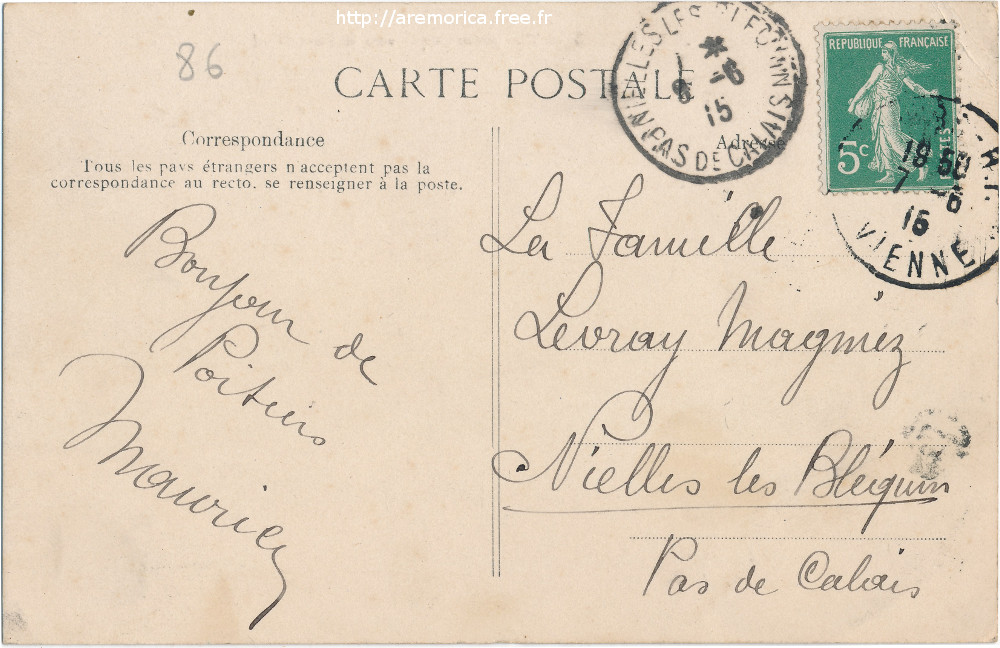 http://aremorica.free.fr
86
CARTE POSTALE
Correspondance
Tous les pays étrangers n'acceptent pas la
correspondance au recto, se renseigner à la poste.
Bonjour de
Poitiers
Maurice
NIELLES LES BLEQUIN
15
PAS DE CALAIS
REPUBLIQUE FRANÇAISE
5c
POSTES
18 50
7 -6
15
VIENNE
Adresse
La Famille
Levray Magniez
Nielles les Bléquin
Pas de Calais